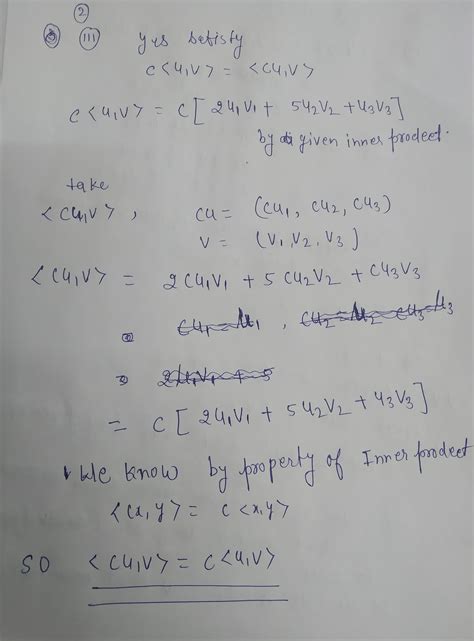 2
(iii) yes satisfy
c<u,v> = <cu,v>
c<u,v> = c[2u₁v₁ + 5u₂v₂ + u₃v₃]
by given inner prodect.
take
<cu,v>, cu = (cu₁, cu₂, cu₃)
v = (v₁, v₂, v₃]
<cu,v> = 2cu₁v₁ + 5cu₂v₂ + cu₃v₃
= c[2u₁v₁ + 5u₂v₂ + u₃v₃]
We know by property of Inner prodect
<cx,y> = c<x,y>
SO <cu,v> = c<u,v>